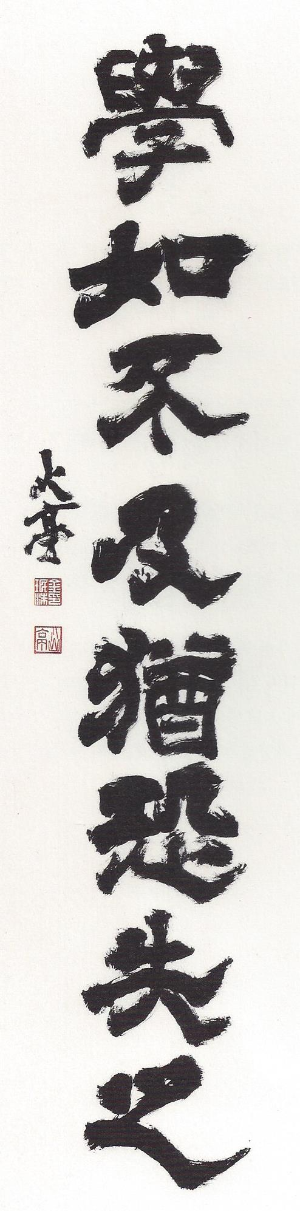 學如不及猶恐失之